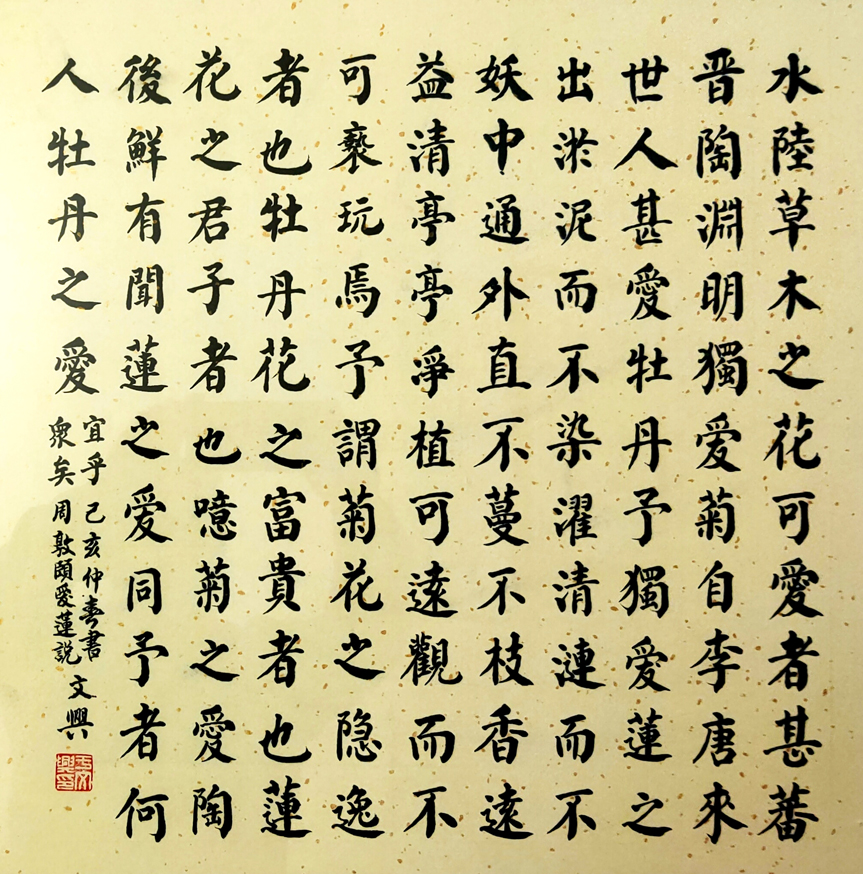 水陸草木之花可愛者甚蕃
晋陶淵明獨愛菊自李唐來
世人甚愛牡丹予獨愛蓮之
出淤泥而不染濯清漣而不
妖中通外直不蔓不枝香遠
益清亭亭淨植可遠觀而不
可褻玩焉予謂菊花之隐逸
者也牡丹花之富貴者也蓮
花之君子者也噫菊之愛陶
後鮮有聞蓮之愛同予者何
人牡丹之愛
宜乎
衆矣
己亥仲春書
周敦頤愛蓮説
文興